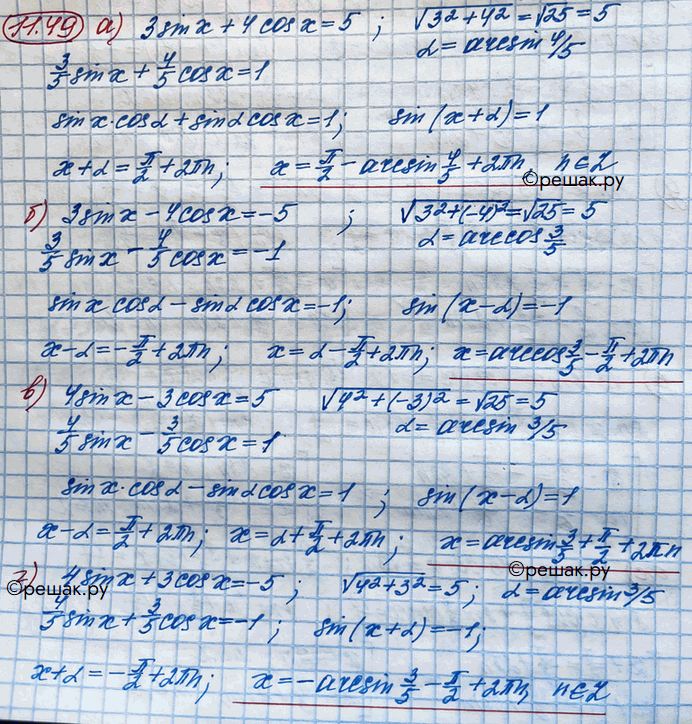 11.49 а) 3sinx + 4cosx = 5 ; √3²+4² = √25 = 5
α = arcsin 4/5
3/5 sinx + 4/5 cosx = 1
sinx·cosα + sinα cosx = 1; sin(x+α) = 1
x+α = π/2 + 2πn; x = π/2 − arcsin 4/5 + 2πn, n∈Z
©решак.ру
б) 3sinx − 4cosx = −5 ; √3²+(−4)² = √25 = 5
α = arccos 3/5
3/5 sinx − 4/5 cosx = −1
sinx cosα − sinα cosx = −1; sin(x−α) = −1
x−α = −π/2 + 2πn; x = α − π/2 + 2πn; x = arccos 3/5 − π/2 + 2πn
в) 4sinx − 3cosx = 5 √4²+(−3)² = √25 = 5
α = arcsin 3/5
4/5 sinx − 3/5 cosx = 1
sinx·cosα − sinα cosx = 1 ; sin(x−α) = 1
x−α = π/2 + 2πn; x = α + π/2 + 2πn; x = arcsin 3/5 + π/2 + 2πn
©решак.ру
г) 4sinx + 3cosx = −5 ; √4²+3² = 5; α = arcsin 3/5
©решак.ру
4/5 sinx + 3/5 cosx = −1; sin(x+α) = −1;
x+α = −π/2 + 2πn; x = −arcsin 3/5 − π/2 + 2πn, n∈Z